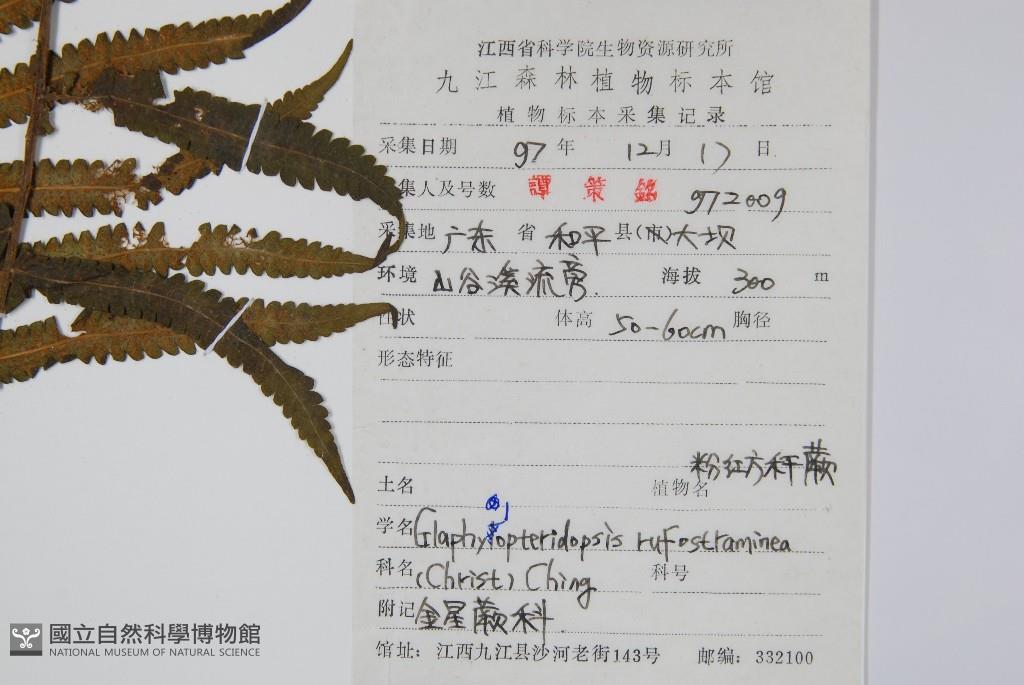 江西省科学院生物资源研究所
九江森林植物标本馆
植物标本采集记录
采集日期 97 年 12月 17 日
集人及号数 譚策銘 972009
采集地 广东 省 和平 县(市)大坝
环境 山谷溪流旁. 海拔 300 m
性状 体高 50-60cm 胸径
形态特征
粉红方秆蕨
土名 植物名
学名 Glaphyopteridopsis rufostraminea
科名 (Christ) Ching 科号
附记 金星蕨科.
馆址: 江西九江县沙河老街143号 邮编: 332100
國立自然科學博物館
NATIONAL MUSEUM OF NATURAL SCIENCE